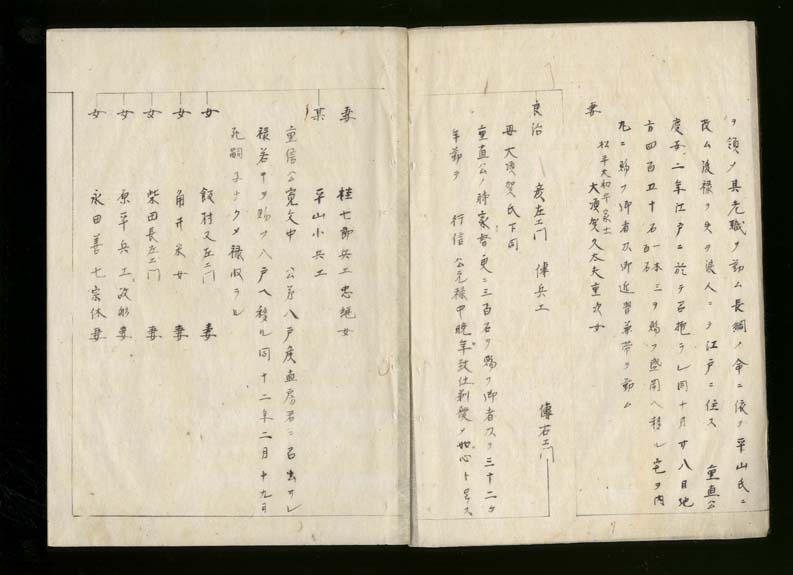 ヲ領メ其老職ヲ勤ム長綱ノ命ニ依テ平山氏ニ
改ム後禄ヲ失ヲ浪人ニテ江戸ニ住ス 重直公
慶安二年江戸ニ於テ召抱ラレ同十月廿八日地
方四百五十石 一本三百石 ヲ賜フ盛岡ヘ移ル宅ヲ内
丸ニ賜フ御者頭御近習兼帯ヲ勤ム
妻 松平大和守家士
大須賀久太夫重次女
良治 彦左エ門 傳兵エ 傳右エ門
母大須賀氏下同
重直公ノ時家督更ニ三百石ヲ賜フ御者頭ヲ三十二ケ
年勤ヲ 行信公元禄中晩年致仕剃髪メ如心ト号ス
妻 桂七郎兵エ忠継女
某 平山小兵エ
重信公寛文中 公系八戸侯直房君ニ召出サレ
禄若干ヲ賜フ八戸ヘ移ル同十二年二月十九日
死嗣子ナクメ禄収ラル
女 飯村又左エ門妻
女 角井米女妻
女 柴田長左エ門妻
女 原平兵エ政形妻
女 永田善七宗休妻